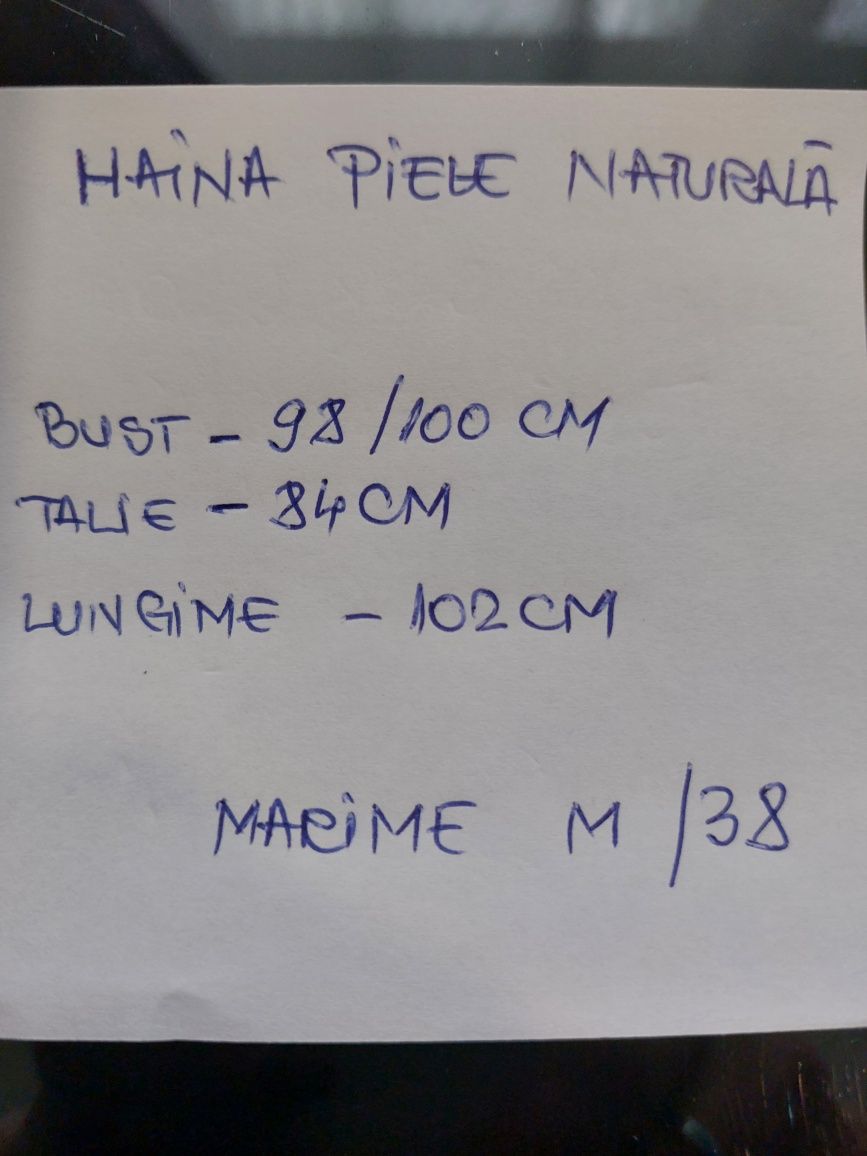 HAINA PIELE NATURALĂ
BUST - 98/100 CM
TALIE - 84 CM
LUNGIME - 102 CM
MARIME M/38